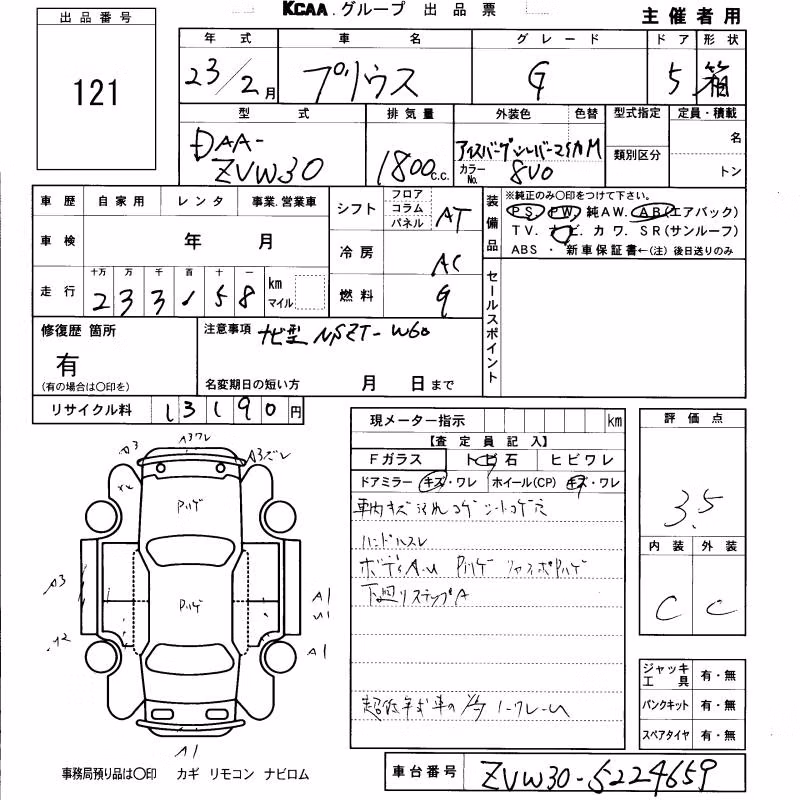 KCAA.グループ 出品票
主催者用
出品番号
121
年式 車名 グレード ドア 形状
23/2月 プリウス G 5 箱
型式 排気量 外装色 色替 型式指定 定員・積載
DAA-
ZVW30
1800c.c.
カラーNo. 8V0
類別区分
名
トン
車歴 自家用 レンタ 事業.営業車
シフト フロア コラム パネル AT
車検 年 月
冷房 AC
走行 十万 万 千 百 十 一
233,58 km マイル
燃料 G
装備品
※純正のみ〇印をつけて下さい。
PS. PW. 純AW. AB(エアバック)
TV. ナビ. カワ. SR(サンルーフ)
ABS ・ 新車保証書←(注)後日送りのみ
セールスポイント
修復歴 箇所
有
(有の場合は〇印を)
注意事項 ナビ型 NSZT-W60
名変期日の短い方 月 日まで
リサイクル料 13190円
現メーター指示 km
評価点
3.5
【査定員記入】
Fガラス トビ石 ヒビワレ
ドアミラー キズ・ワレ ホイール(CP) キズ・ワレ
車内キズ 汚れ コゲ シートコゲ穴
ハンドルスレ
ボディA.U Pハゲ
下廻りステップA
内装 外装
C C
A3 A3ワレ A3ズレ
Pハゲ
Pハゲ
A3
A1
A1
A1
ジャッキ工具 有・無
パンクキット 有・無
スペアタイヤ 有・無
事務局預り品は〇印 カギ リモコン ナビロム
車台番号 ZVW30-5224659